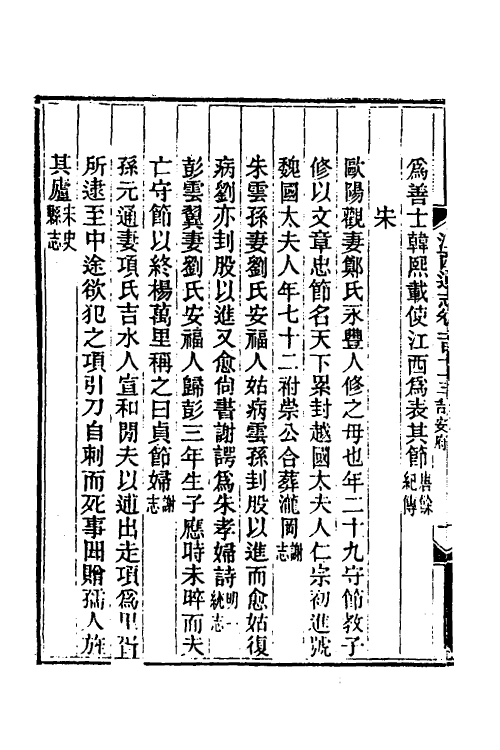 江西通志卷一百六十三 吉安府
爲善士韓熙載使江西爲表其節 唐餘紀傳
宋
歐陽觀妻鄭氏永豐人修之母也年二十九守節教子
修以文章忠節名天下累封越國太夫人仁宗初進號
魏國太夫人年七十二祔崇公合葬瀧岡 謝志
朱雲孫妻劉氏安福人姑病雲孫刲股以進而愈姑復
病劉亦刲股以進又愈尙書謝諤爲朱孝婦詩 明一統志
彭雲翼妻劉氏安福人歸彭三年生子應時未晬而夫
亡守節以終楊萬里稱之曰貞節婦 謝志
孫元通妻項氏吉水人宣和閒夫以逋出走項爲里胥
所逮至中途欲犯之項引刀自刺而死事聞贈孺人旌
其廬 宋史 縣志